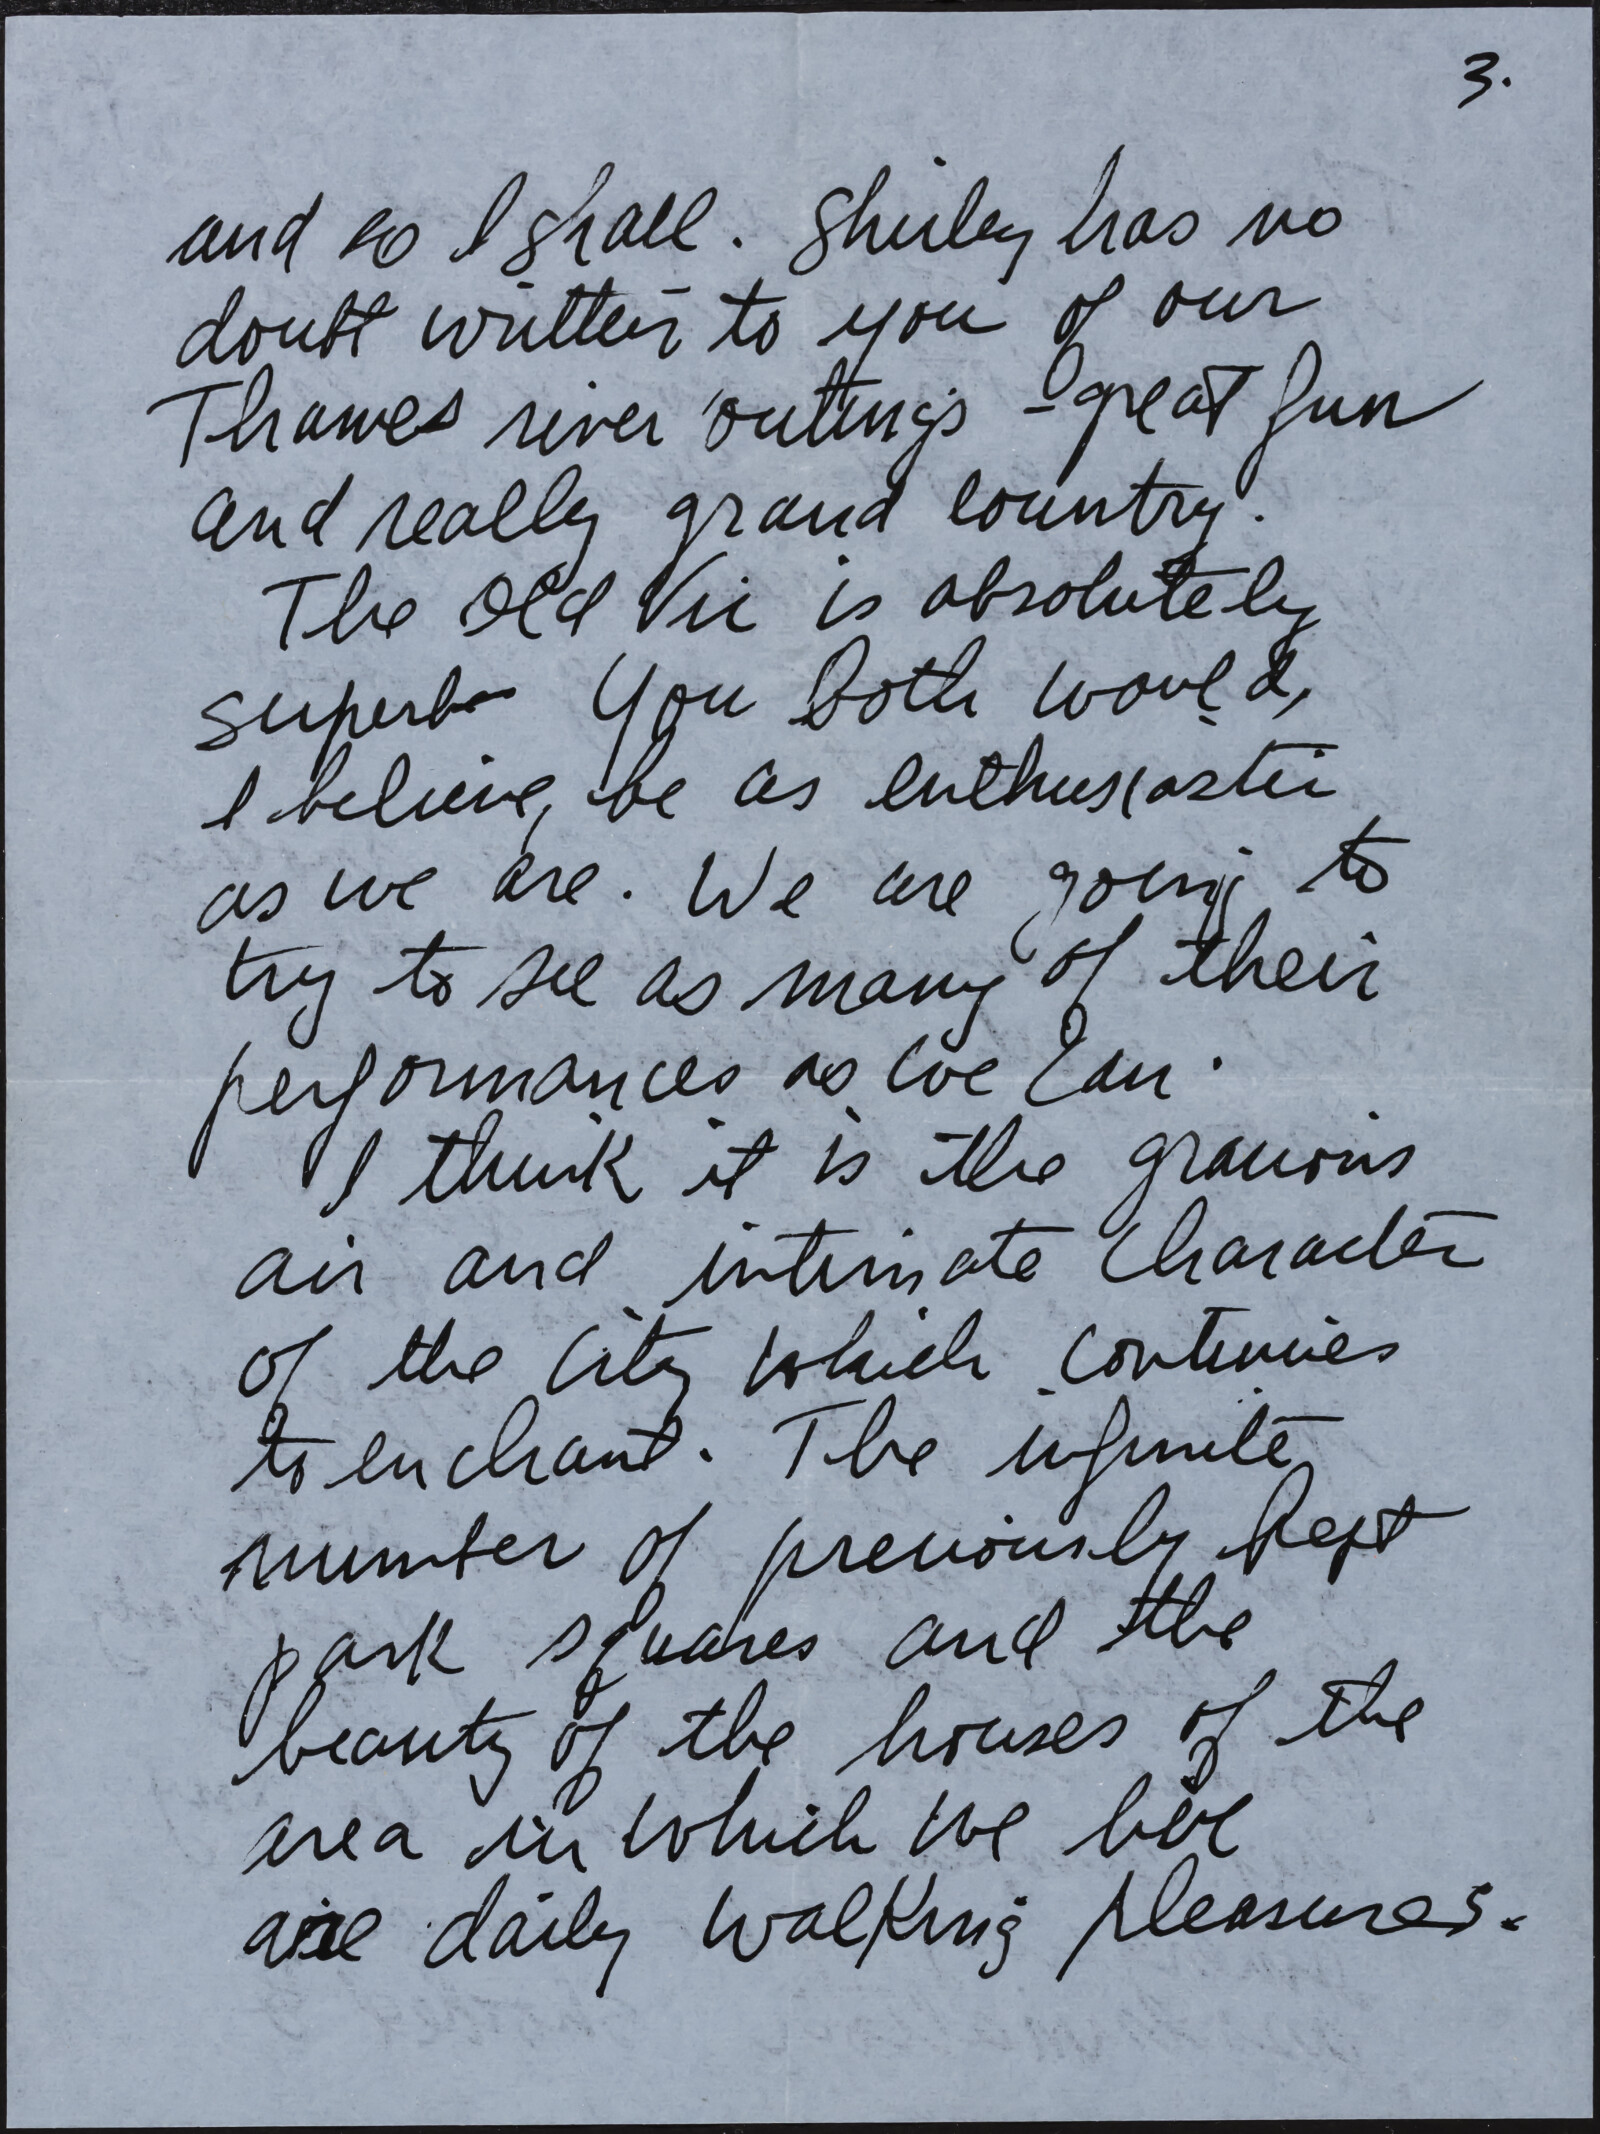 3.
and so I shall. Shirley has no
doubt written to you of our
Thames river outings - great fun
and really grand country.
The Old Vic is absolutely
superb - You both would,
I believe, be as enthusiastic
as we are. We are going to
try to see as many of their
performances as we can.
I think it is the gracious
air and intimate character
of the city which continues
to enchant. The infinite
number of previously kept
park squares and the
beauty of the houses of the
area in which we live
are daily walking pleasures.